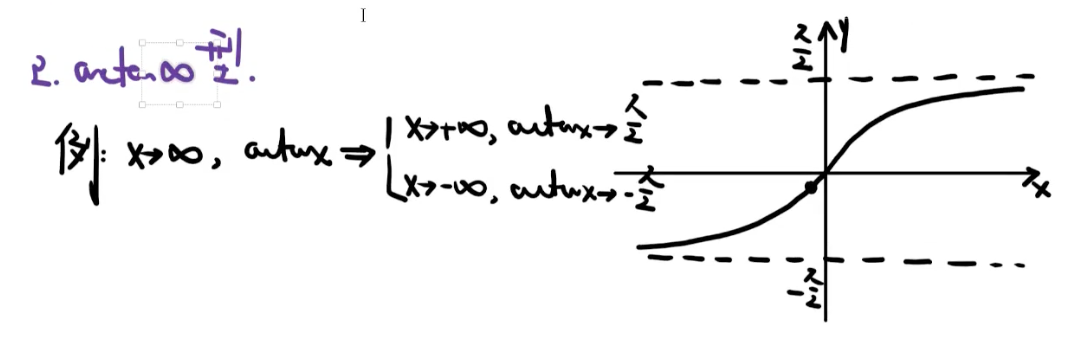 2. arctan∞型.
例: x→∞, arctanx ⇒ { x→+∞, arctanx→π/2
x→-∞, arctanx→-π/2
π/2
y
x
-π/2